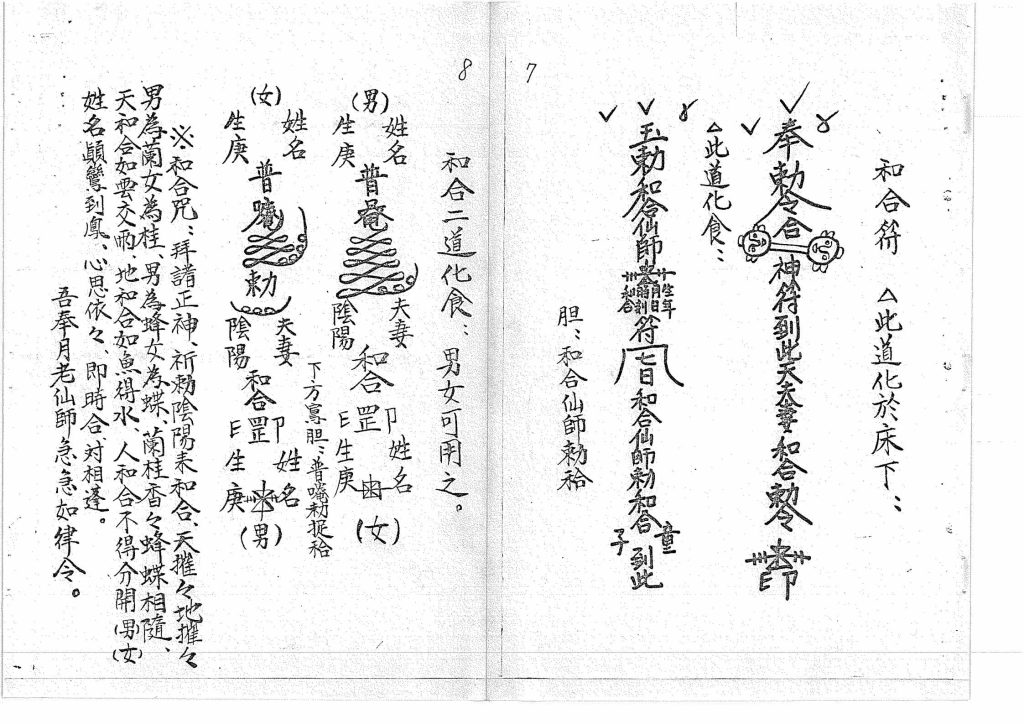 7
和合符 △此道化於床下：
奉勅令合神符到此天夫妻和合勅令
印
△此道化食：
玉勅和合仙師
生年月日時到
和合
符七日和合仙師勅和合
童子
到此
胆：和合仙師勅袷
8
和合二道化食：男女可用之。
(男)
姓名
生庚
普唵
夫妻
陰陽
和合罡印
姓名
生庚
(女)
下方寫胆：普唵勅捉袷
(女)
姓名
生庚
普唵
勅
夫妻
陰陽
和合罡印
姓名
生庚
(男)
※和合咒：拜請正神、祈勅陰陽來和合、天摧々地摧々
男為蘭女為桂、男為蜂女為蝶、蘭桂香々蜂蝶相隨、
天和合如雲交雨、地和合如魚得水、人和合不得分開(男)(女)
姓名顛鸞到鳳、心思依々、即時合対相逢。
吾奉月老仙師急急如律令。